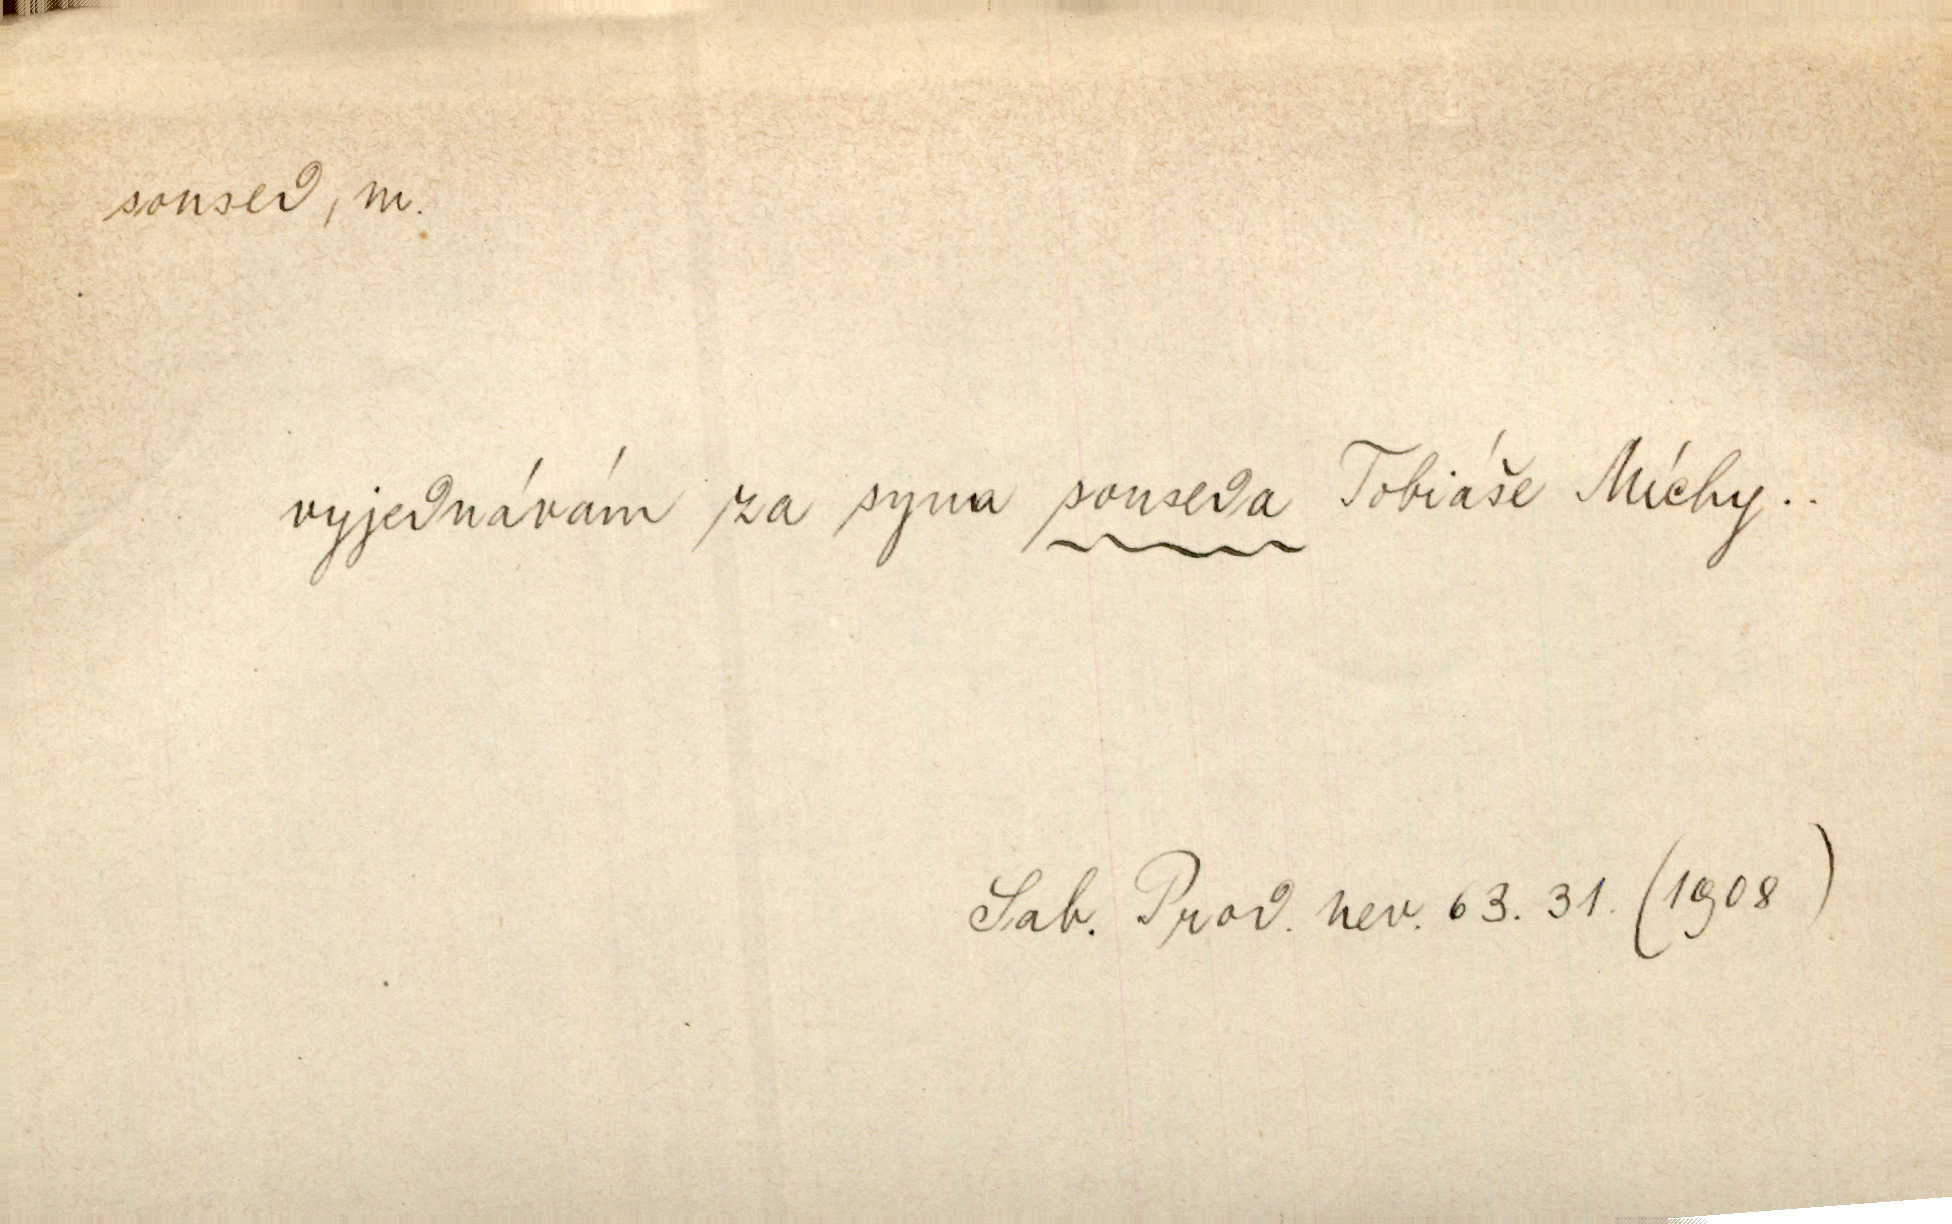 soused, m.
vyjednávám za syna souseda Tobiáše Míchy..
Sab. Prod. nev. 63. 31. (1908)